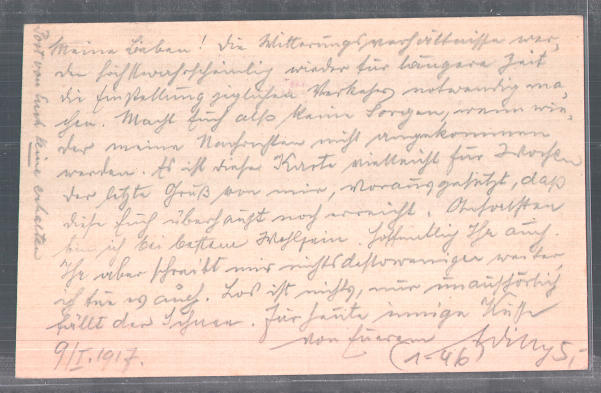 Meine Lieben! Die Witterungsverhältnisse wer-
den höchstwahrscheinlich wieder für längere Zeit
die Einstellung jeglichen Verkehrs notwendig ma-
chen. Macht Euch also keine Sorgen, wenn wie-
der meine Nachrichten nicht angekommen
werden. Es ist diese Karte vielleicht für Wochen
der letzte Gruß von mir, vorausgesetzt, daß
diese Euch überhaupt noch erreicht.
bin ich bei bestem Wohlsein. Hoffentlich Ihr auch.
Ihr aber schreibt mir nichtsdestoweniger weiter,
ich tue es auch. Los ist nichts, nur unaufhörlich
fällt der Schnee. Für heute innige Küsse
von Euerem Willy
9/I. 1917.
(1-46)
5,-
Post von Euch keine erhalten